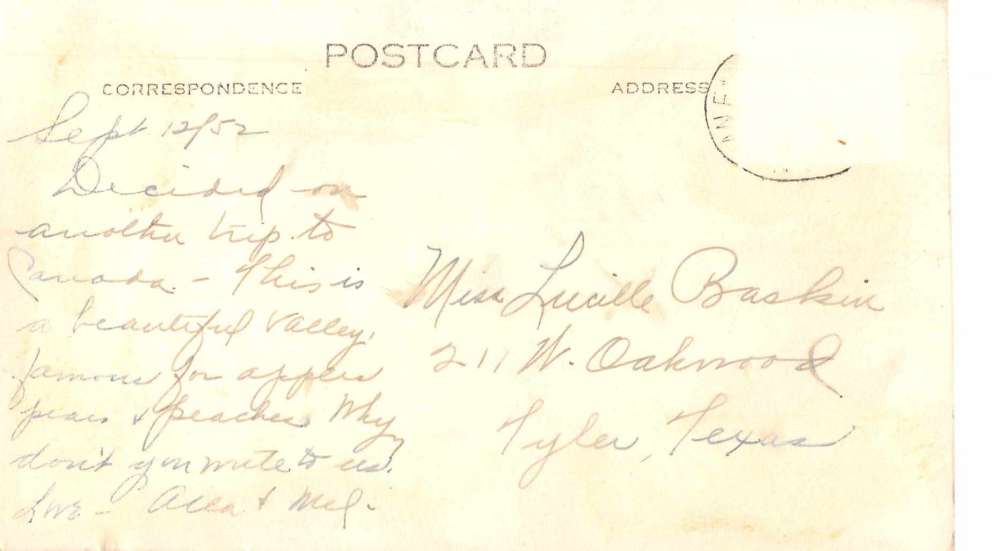 POSTCARD
CORRESPONDENCE
ADDRESS
Sept 12/52
Decided on
another trip to
Canada. - This is
a beautiful valley,
famous for apples
pears & peaches. Why
don't you write to us.
Love -
& Mel.
Miss Lucille Baskin
211 W. Oakwood
Tyler, Texas